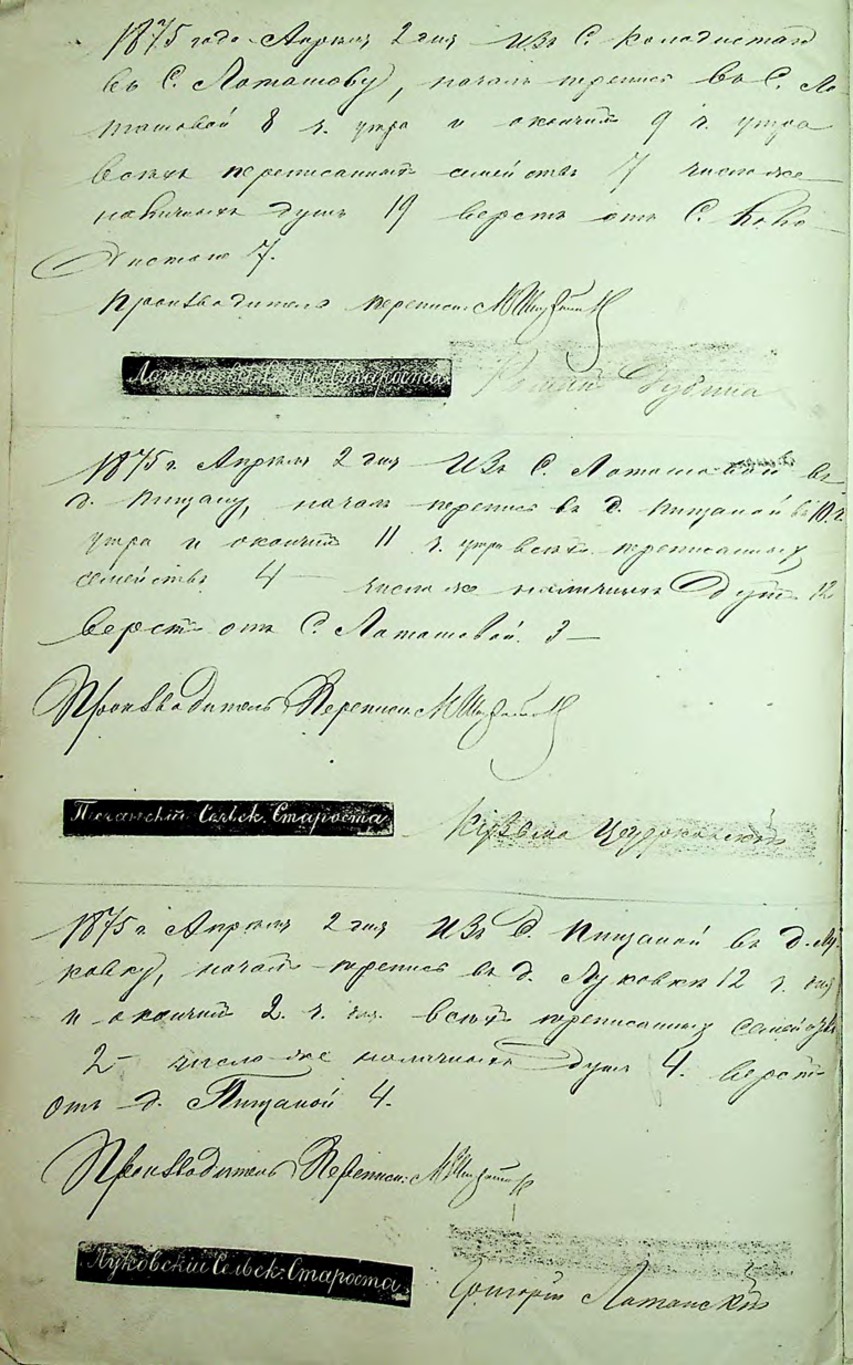 1875 года Апреля 2 дня Изъ С. Колодистаго
въ С. Лоташову, началъ перепись въ С. Ло-
ташовой 8 ч. утра и окончилъ 9 ч. утра
всѣхъ переписанныхъ семействъ 7 число же
наличныхъ душъ 19 верстъ отъ С. Коло-
дистаго 7.
Производитель переписи
Сельск. Староста Дубина
1875 г. Апреля 2 дня Изъ С. Лоташовой въ
д. Пищану, началъ перепись въ д. Пищаной въ 10 ч.
утра и окончилъ 11 ч. утра всѣхъ переписанныхъ
семействъ 4 — число же наличныхъ душъ 12
верстъ отъ С. Лоташовой 3 —
Производитель Переписи
Песчанскій Сельск. Староста Кузьма
1875 г. Апреля 2 дня Изъ д. Пищаной въ д. Лу-
ковку, началъ перепись въ д. Луковки 12 ч. дня
и окончилъ 2 ч. дня всѣхъ переписанныхъ семействъ
2 — число же наличныхъ душъ 4. верстъ
отъ д. Пищаной 4.
Производитель Переписи
Луковскій Сельск. Староста Григорій